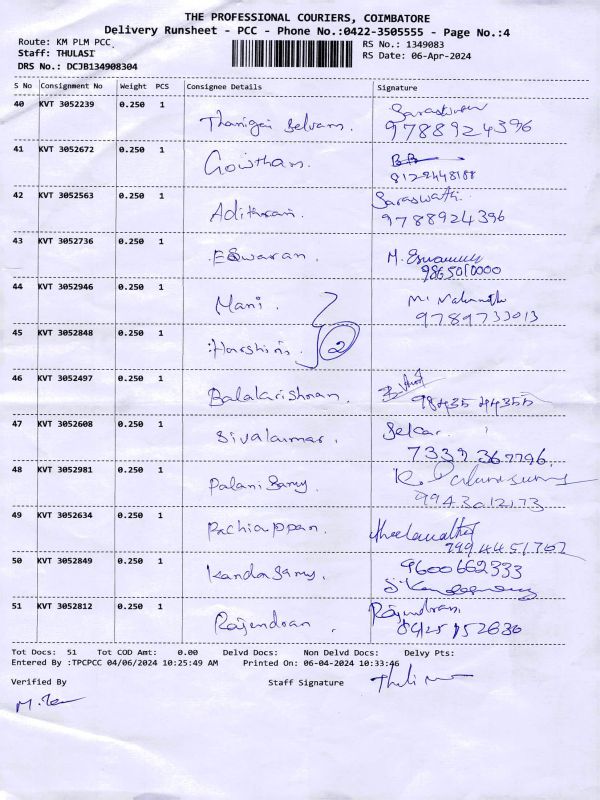 THE PROFESSIONAL COURIERS, COIMBATORE
Delivery Runsheet - PCC - Phone No.:0422-3505555 - Page No.:4
Route: KM PLM PCC.
RS No.: 1349083
Staff: THULASI
RS Date: 06-Apr-2024
DRS No.: DCJB134908304
S No Consignment No Weight PCS Consignee Details Signature
40 KVT 3052239 0.250 1 Thangai Selvam.
9788924396
41 KVT 3052672 0.250 1 Gowtham.
8129448188
42 KVT 3052563 0.250 1 Saraswathi.
9788924396
43 KVT 3052736 0.250 1 ESwaran. M. Eswaran
9865010000
44 KVT 3052946 0.250 1 Mani.
9789733013
45 KVT 3052848 0.250 1 Harshini. 2
46 KVT 3052497 0.250 1 Balakrishnan.
98435 44355
47 KVT 3052608 0.250 1 Sivakumar. Selvar.
7339 367796
48 KVT 3052981 0.250 1 Palani Samy.
9943012173
49 KVT 3052634 0.250 1 Pachiappan.
9994451762
50 KVT 3052849 0.250 1 Kandasamy. 9600662333
51 KVT 3052812 0.250 1 Rajendran. Rajendran
Tot Docs: 51 Tot COD Amt: 0.00 Delvd Docs: Non Delvd Docs: Delvy Pts:
Entered By :TPCPCC 04/06/2024 10:25:49 AM Printed On: 06-04-2024 10:33:46
Verified By Staff Signature